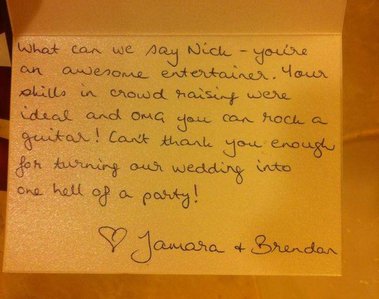 What can we say Nick - you're
an awesome entertainer. Your
skills in crowd raising were
ideal and OMG you can rock a
guitar! Can't thank you enough
for turning our wedding into
one hell of a party!
♡ Tamara + Brendan